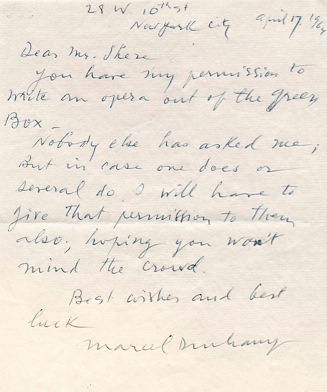 28 W 10th st
New York City April 17 1964
Dear Mr. Shere
you have my permission to
write an opera out of the green
Box –
Nobody else has asked me;
But in case one does or
several do, I will have to
give that permission to them
also, hoping you won't
mind the crowd.
Best wishes and best
luck
Marcel Duchamp